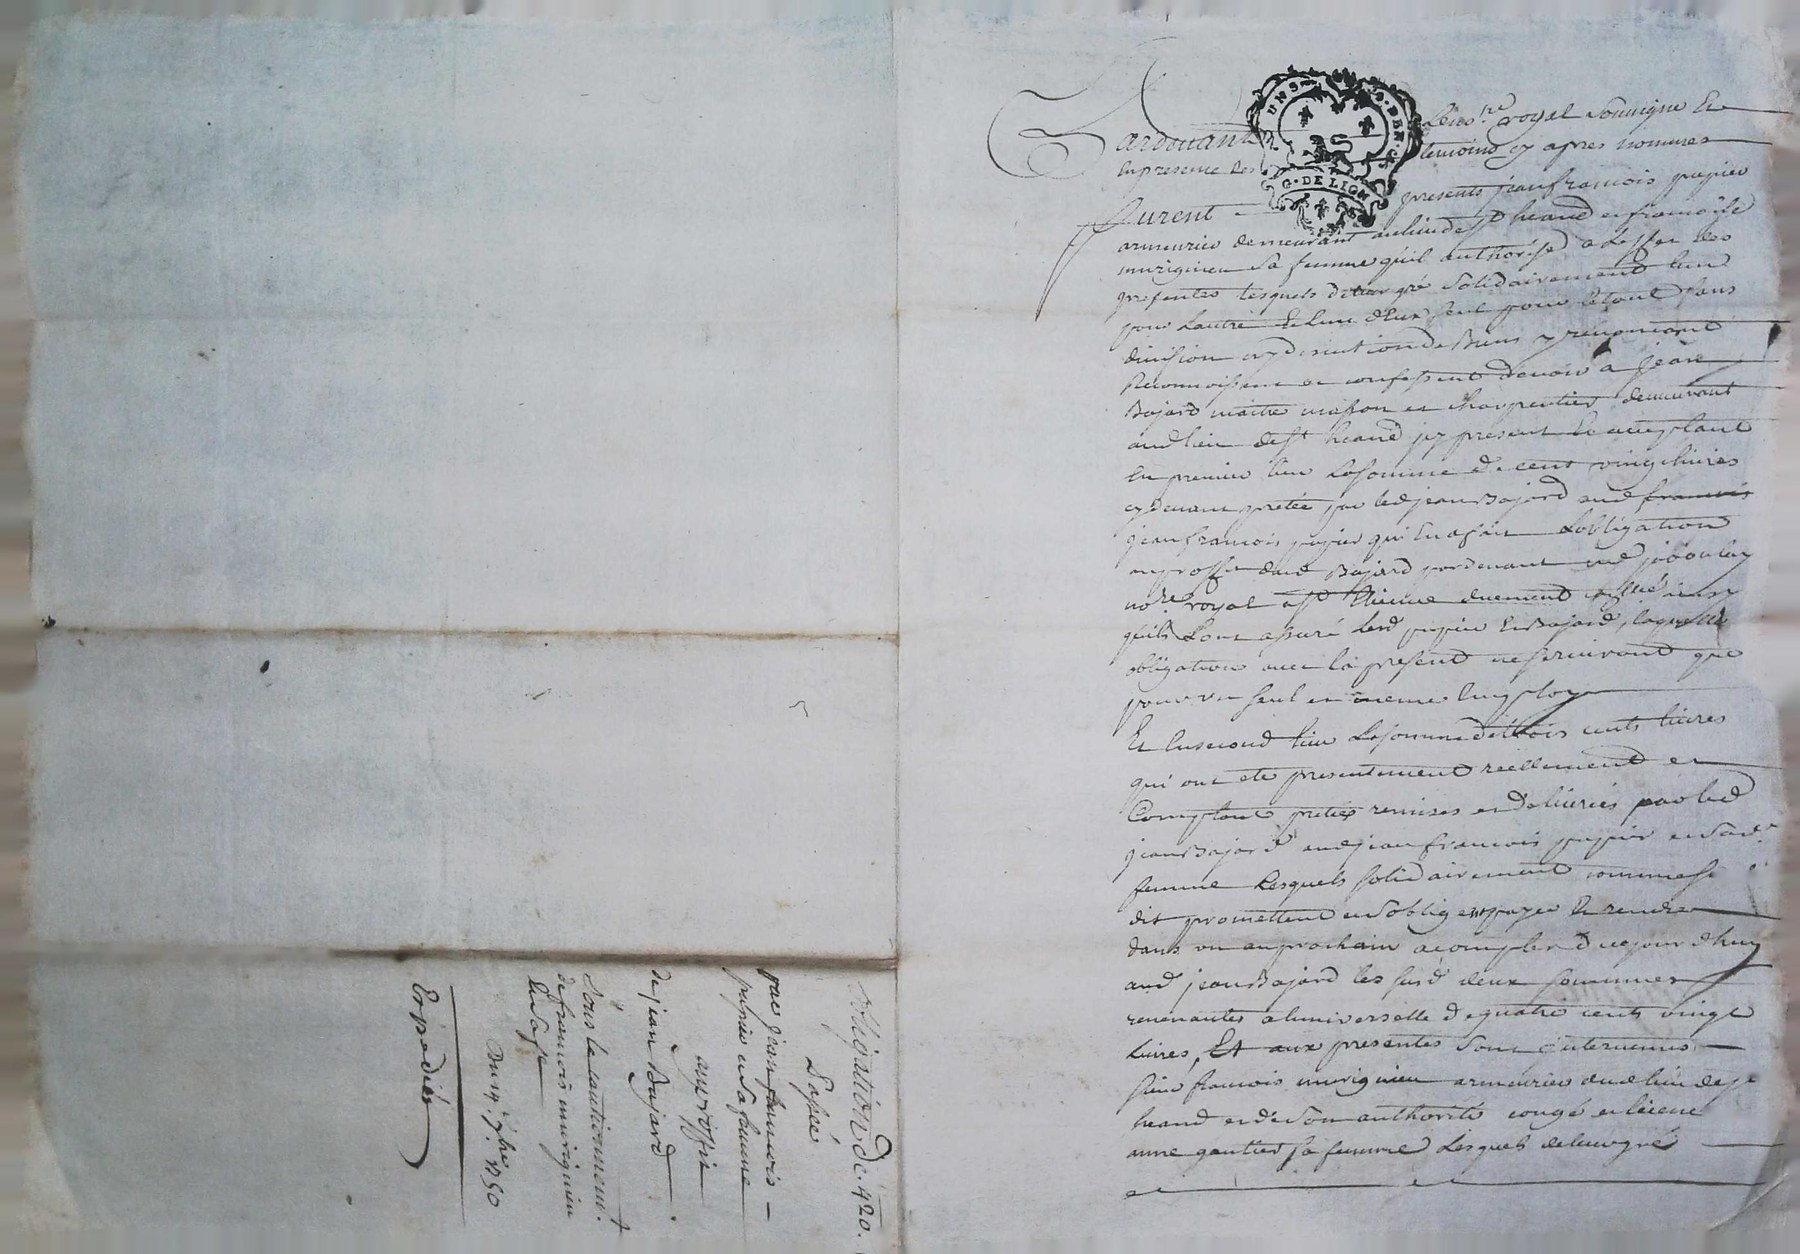 Pardevant Le nore royal Soussigné Et
En presence des temoins cy apres nommes
Furent presents jean francois papier
armeurier demeurant au lieu de st heand et francoise
murigneu Sa femme quil authorise a Leffet des
presentes lesquels de leur gré Solidairement lun
pour Lautre Et lun deux seul pour le tout sans
division ny discution de Biens y renoncant
Reconnoissent et confessent devoir a jean
Bajard maitre masson et charpentier demeurant
aud lieu de st heand icy present Et acceptant
En premier lieu La somme de cent vingt livres
cy devant prétée par led jean Bajard aud francois
jean francois papier qui En a fait Lobligation
au proffit dud Bajard pardevant
nore royal a st Etienne duement
quils Lont assuré Lesd papier Et Bajard, laquelle
obligation avec la present ne serviront que
pour un seul et meme Employ
Et En second lieu La somme de trois cents livres
qui ont eté presentement réellement et
Comptant pretées remises et délivrées par led
jean Bajard aud jean francois papier et Sad
femme Lesquels solidairement comme
dit promettent et Soblig payer Et rendre
dans un an prochain a compter de ce jour dhuy
aud jean Bajard les susd deux sommes
revenantes a luniverselle de quatre cents vingt
livres, Et aux presentes Sont intervenus
sieur francois murigneu armeurier dud lieu de st
heand et de Son authorité congé et licence
anne gautier sa femme Lesquels de leur gré
obligation de 420.
Passée
par jean francois
papier et Sa femme
au proffit
de jean Bajard
Sous le cautionnement
de francois murigneu
Et Sa fe
Du 14. 7bre. 1750
Expediée
G. DE LION